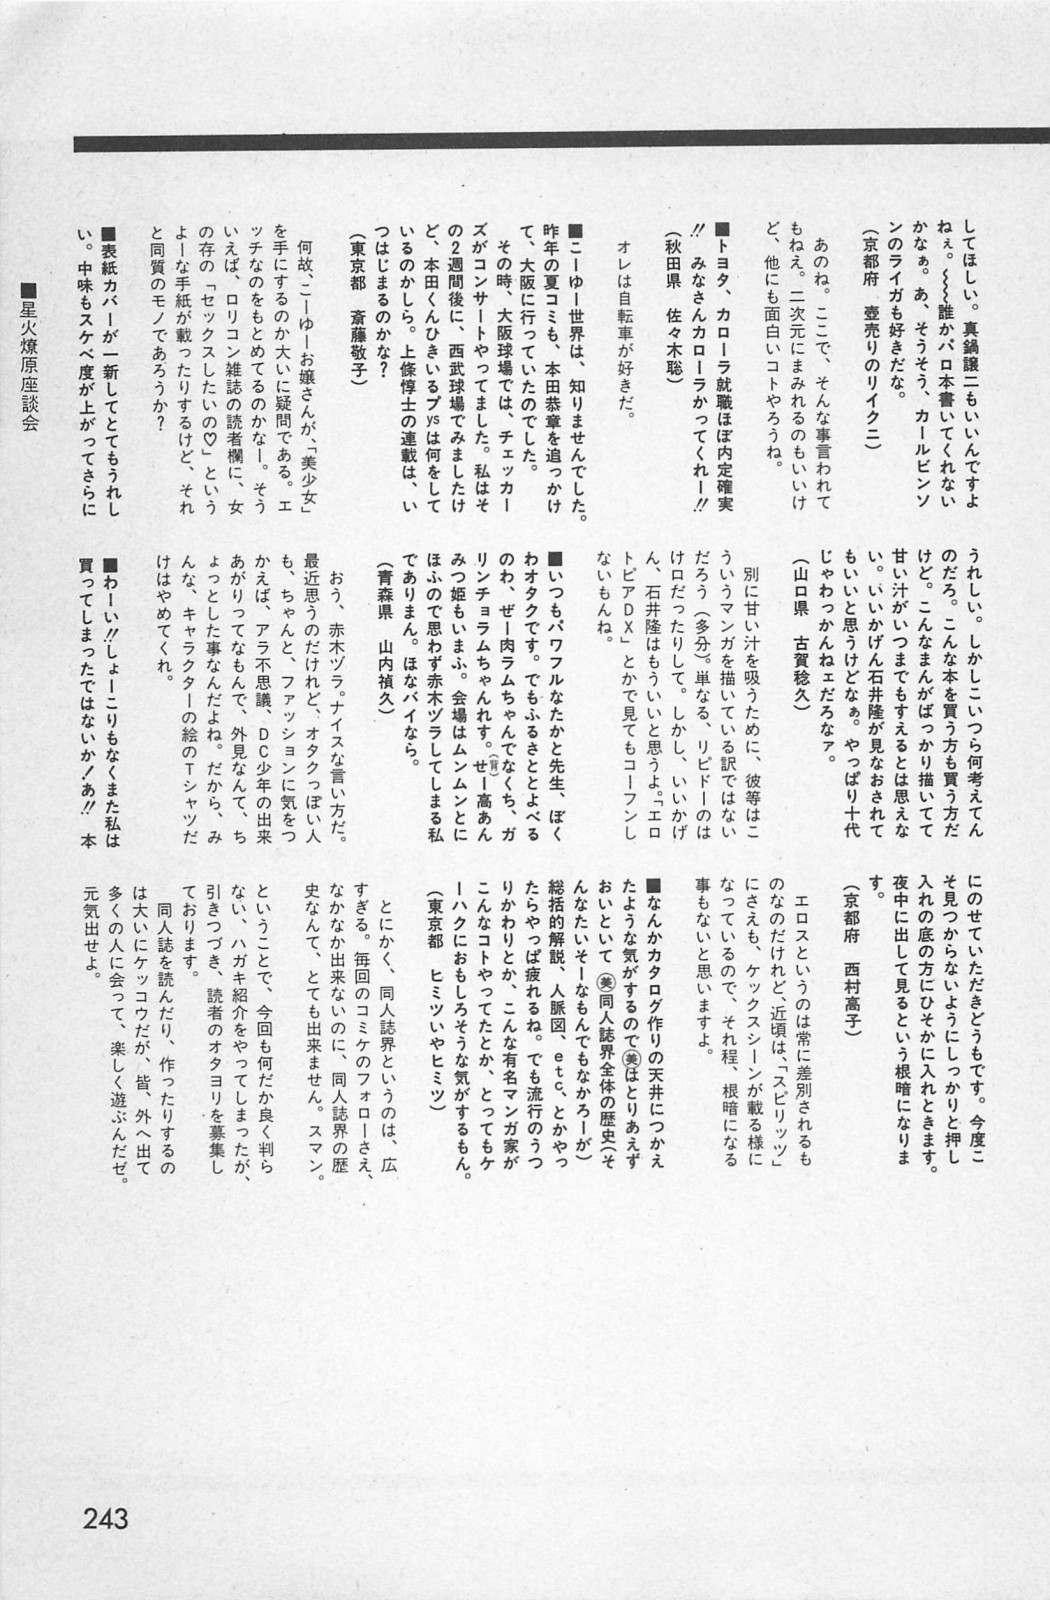 してほしい。真鍋譲二もいいんですよ
ねぇ。〜〜〜誰かパロ本書いてくれない
かなぁ。あ、そうそう、カールビンソ
ンのライガも好きだな。
（京都府　壺売りのリイクニ）
あのね。ここで、そんな事言われて
もねえ。二次元にまみれるのもいいけ
ど、他にも面白いコトやろうね。
■トヨタ、カローラ就職ほぼ内定確実
!!　みなさんカローラかってくれー!!
（秋田県　佐々木聡）
オレは自転車が好きだ。
■こーゆー世界は、知りませんでした。
昨年の夏コミも、本田恭章を追っかけ
て、大阪に行っていたのでした。
その時、大阪球場では、チェッカー
ズがコンサートやってました。私はそ
の2週間後に、西武球場でみましたけ
ど、本田くんひきいるプysは何をして
いるのかしら。上條惇士の連載は、い
つはじまるのかな？
（東京都　斎藤敬子）
何故、こーゆーお嬢さんが、「美少女」
を手にするのか大いに疑問である。エ
ッチなのをもとめてるのかなー。そう
いえば、ロリコン雑誌の読者欄に、女
の存の「セックスしたいの♡」という
よーな手紙が載ったりするけど、それ
と同質のモノであろうか？
■表紙カバーが一新してとてもうれし
い。中味もスケベ度が上がってさらに
うれしい。しかしこいつら何考えてん
のだろ。こんな本を買う方も買う方だ
けど。こんなまんがばっかり描いてて
甘い汁がいつまでもすえるとは思えな
い。いいかげん石井隆が見なおされて
もいいと思うけどなぁ。やっぱり十代
じゃわっかんねェだろなァ。
（山口県　古賀稔久）
別に甘い汁を吸うために、彼等はこ
ういうマンガを描いている訳ではない
だろう（多分）。単なる、リピドーのは
けロだったりして。しかし、いいかげ
ん、石井隆はもういいと思うよ。「エロ
トピアDX」とかで見てもコーフンし
ないもんね。
■いつもパワフルなたかと先生、ぼく
わオタクです。でもふるさととよべる
のわ、ぜー肉ラムちゃんでなくち、ガ
リンチョラムちゃんれす。せー(背)高あん
みつ姫もいまふ。会場はムンムンとに
ほふので思わず赤木ヅラしてしまる私
でありまん。ほなバイなら。
（青森県　山内禎久）
おう、赤木ヅラ。ナイスな言い方だ。
最近思うのだけれど、オタクっぽい人
も、ちゃんと、ファッションに気をつ
かえば、アラ不思議、DC少年の出来
あがりってなもんで、外見なんて、ち
ょっとした事なんだよね。だから、み
んな、キャラクターの絵のTシャツだ
けはやめてくれ。
■わーい!!しょーこりもなくまた私は
買ってしまったではないか！あ!!　本
にのせていただきどうもです。今度こ
そ見つからないようにしっかりと押し
入れの底の方にひそかに入れときます。
夜中に出して見るという根暗になりま
す。
（京都府　西村高子）
エロスというのは常に差別されるも
のなのだけれど、近頃は、「スピリッツ」
にさえも、ケックスシーンが載る様に
なっているので、それ程、根暗になる
事もないと思いますよ。
■なんかカタログ作りの天井につかえ
たような気がするので㊤はとりあえず
おいといて 美 同人誌界全体の歴史（そ
んなたいそーなもんでもなかろーが）
総括的解説、人脈図、etc、とかやっ
たらやっぱ疲れるね。でも流行のうつ
りかわりとか、こんな有名マンガ家が
こんなコトやってたとか、とってもケ
ーハクにおもしろそうな気がするもん。
（東京都　ヒミツいやヒミツ）
とにかく、同人誌界というのは、広
すぎる。毎回のコミケのフォローさえ、
なかなか出来ないのに、同人誌界の歴
史なんて、とても出来ません。スマン。
ということで、今回も何だか良く判ら
ない、ハガキ紹介をやってしまったが、
引きつづき、読者のオタヨリを募集し
ております。
同人誌を読んだり、作ったりするの
は大いにケッコウだが、皆、外へ出て
多くの人に会って、楽しく遊ぶんだぜ。
元気出せよ。
■星火燎原座談会
243